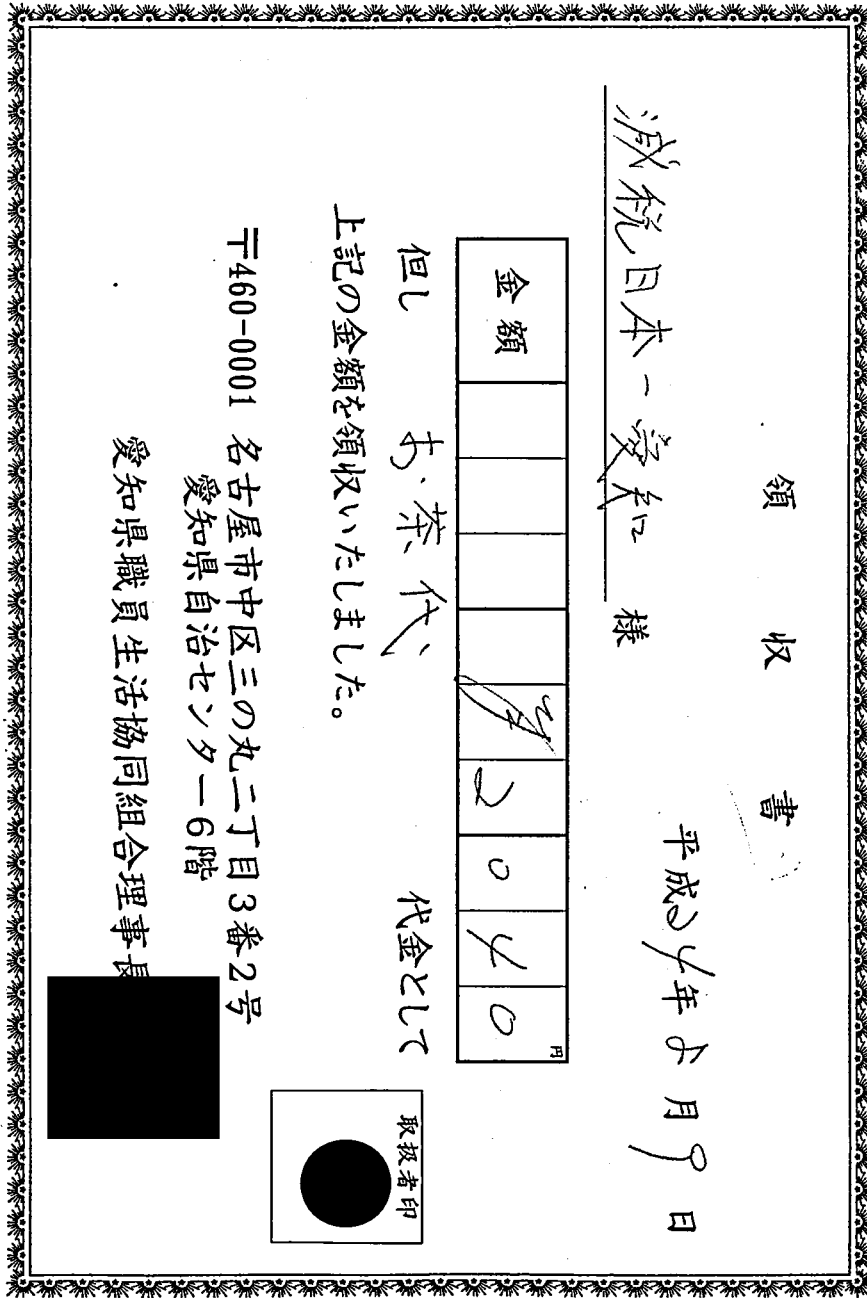 領収書
平成24年5月9日
減税日本一愛知 様
金額 ¥2040円
但し お茶代 代金として
上記の金額を領収いたしました。
〒460-0001 名古屋市中区三の丸二丁目3番2号
愛知県自治センター6階
愛知県職員生活協同組合理事長
取扱者印